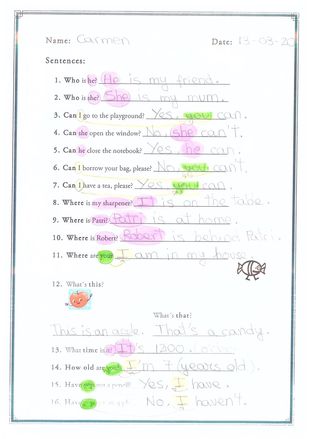 Name: Carmen Date: 13-03-20
Sentences:
1. Who is he? He is my friend.
2. Who is she? She is my mum.
3. Can I go to the playground? Yes, you can.
4. Can she open the window? No, she can't.
5. Can he close the notebook? Yes, he can.
6. Can I borrow your bag, please? No, you can't.
7. Can I have a tea, please? Yes you can.
8. Where is my sharpener? It is on the table.
9. Where is Patri? Patri is at home.
10. Where is Robert? Robert is behind Patri.
11. Where are you? I am in my house
12. What's this?
What's that?
This is an apple. That's a candy.
13. What time is it? It's 1200.
14. How old are you? I'm 7 (years old).
15. Have you got a pencil? Yes, I have.
16. Have you No, I haven't.